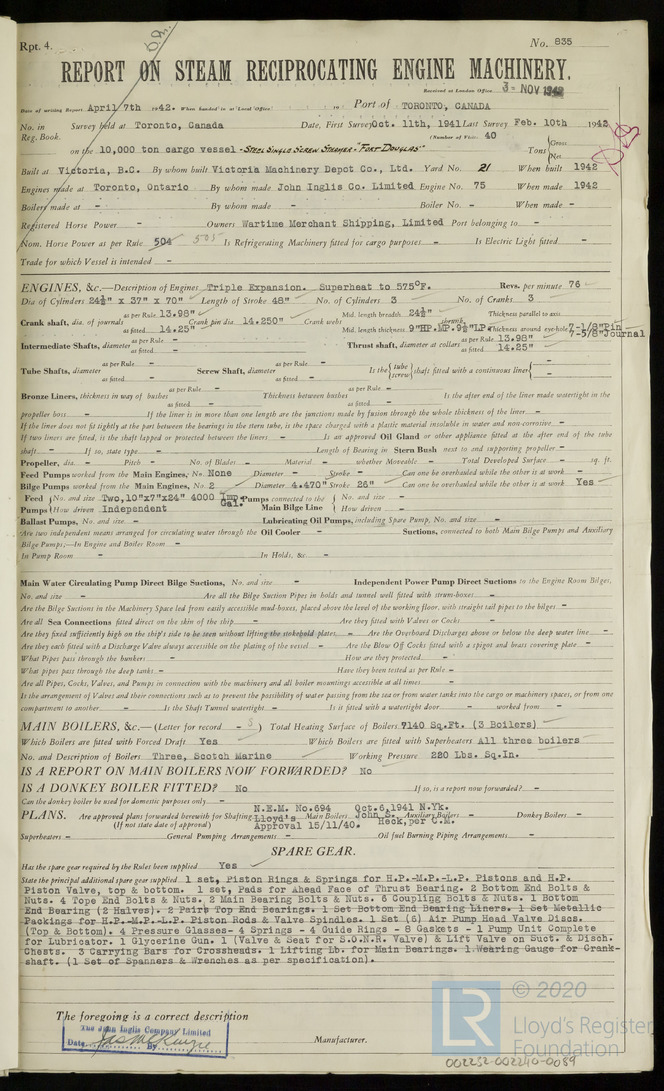 Rpt. 4. No. 835
REPORT ON STEAM RECIPROCATING ENGINE MACHINERY.
Received at London Office 3 - NOV 1942
Date of writing Report April 7th 1942. When handed in at Local Office 19 Port of TORONTO, CANADA
No. in Survey held at Toronto, Canada Date, First Survey Oct. 11th, 1941 Last Survey Feb. 10th 1942
Reg. Book. (Number of Visits 40
on the 10,000 ton cargo vessel - STEEL SINGLE SCREW STEAMER "FORT DOUGLAS" Tons {Gross
Net
Built at Victoria, B.C. By whom built Victoria Machinery Depot Co., Ltd. Yard No. 21 When built 1942
Engines made at Toronto, Ontario By whom made John Inglis Co. Limited Engine No. 75 When made 1942
Boilers made at - By whom made - Boiler No. - When made -
Registered Horse Power - Owners Wartime Merchant Shipping, Limited Port belonging to -
Nom. Horse Power as per Rule 504 505 Is Refrigerating Machinery fitted for cargo purposes - Is Electric Light fitted -
Trade for which Vessel is intended -
ENGINES, &c.—Description of Engines Triple Expansion. Superheat to 575°F. Revs. per minute 76
Dia of Cylinders 24½" x 37" x 70" Length of Stroke 48" No. of Cylinders 3 No. of Cranks 3
Crank shaft, dia. of journals as per Rule 13.98" as fitted 14.25" Crank pin dia. 14.250" Crank webs Mid. length breadth 24½" shrunk Thickness parallel to axis
Mid. length thickness 9"HP.MP.9½"LP. Thickness around eyehole 7-1/8"Pin 7-5/8"Journal
Intermediate Shafts, diameter as per Rule - as fitted - Thrust shaft, diameter at collars as per Rule 13.98" as fitted 14.25"
Tube Shafts, diameter as per Rule - as fitted - Screw Shaft, diameter as per Rule - as fitted - Is the {tube screw} shaft fitted with a continuous liner { -
Bronze Liners, thickness in way of bushes as per Rule - as fitted - Thickness between bushes as per Rule - as fitted - Is the after end of the liner made watertight in the
propeller boss - If the liner is in more than one length are the junctions made by fusion through the whole thickness of the liner -
If the liner does not fit tightly at the part between the bearings in the stern tube, is the space charged with a plastic material insoluble in water and non-corrosive -
If two liners are fitted, is the shaft lapped or protected between the liners - Is an approved Oil Gland or other appliance fitted at the after end of the tube
shaft - If so, state type - Length of Bearing in Stern Bush next to and supporting propeller -
Propeller, dia. - Pitch - No. of Blades - Material - whether Moveable - Total Developed Surface - sq. ft.
Feed Pumps worked from the Main Engines, No. None Diameter - Stroke - Can one be overhauled while the other is at work -
Bilge Pumps worked from the Main Engines, No. 2 Diameter 4.470" Stroke 26" Can one be overhauled while the other is at work Yes
Feed Pumps {No. and size Two, 10"x7"x24" 4000 Imp. Gal. Pumps connected to the Main Bilge Line {No. and size -
How driven Independent How driven -
Ballast Pumps, No. and size - Lubricating Oil Pumps, including Spare Pump, No. and size -
Are two independent means arranged for circulating water through the Oil Cooler - Suctions, connected to both Main Bilge Pumps and Auxiliary
Bilge Pumps;—In Engine and Boiler Room -
In Pump Room - In Holds, &c -
Main Water Circulating Pump Direct Bilge Suctions, No. and size - Independent Power Pump Direct Suctions to the Engine Room Bilges,
No. and size - Are all the Bilge Suction Pipes in holds and tunnel well fitted with strum-boxes -
Are the Bilge Suctions in the Machinery Space led from easily accessible mud-boxes, placed above the level of the working floor, with straight tail pipes to the bilges -
Are all Sea Connections fitted direct on the skin of the ship - Are they fitted with Valves or Cocks -
Are they fixed sufficiently high on the ship's side to be seen without lifting the stokehold plates - Are the Overboard Discharges above or below the deep water line -
Are they each fitted with a Discharge Valve always accessible on the plating of the vessel - Are the Blow Off Cocks fitted with a spigot and brass covering plate -
What Pipes pass through the bunkers - How are they protected -
What pipes pass through the deep tanks - Have they been tested as per Rule -
Are all Pipes, Cocks, Valves, and Pumps in connection with the machinery and all boiler mountings accessible at all times -
Is the arrangement of Valves and their connections such as to prevent the possibility of water passing from the sea or from water tanks into the cargo or machinery spaces, or from one
compartment to another - Is the Shaft Tunnel watertight - Is it fitted with a watertight door - worked from -
MAIN BOILERS, &c.—(Letter for record - S) Total Heating Surface of Boilers 7140 Sq.Ft. (3 Boilers)
Which Boilers are fitted with Forced Draft Yes Which Boilers are fitted with Superheaters All three boilers
No. and Description of Boilers Three, Scotch Marine Working Pressure 220 Lbs. Sq.In.
IS A REPORT ON MAIN BOILERS NOW FORWARDED? No
IS A DONKEY BOILER FITTED? No If so, is a report now forwarded? -
Can the donkey boiler be used for domestic purposes only -
PLANS. Are approved plans forwarded herewith for Shafting N.E.M. No.694 Lloyd's Approval 15/11/40. Main Boilers Oct.6,1941 N.Yk. John S. Heck, per C.M. Auxiliary Boilers - Donkey Boilers -
(If not state date of approval)
Superheaters - General Pumping Arrangements - Oil fuel Burning Piping Arrangements -
SPARE GEAR.
Has the spare gear required by the Rules been supplied Yes
State the principal additional spare gear supplied 1 set, Piston Rings & Springs for H.P.-M.P.-L.P. Pistons and H.P.
Piston Valve, top & bottom. 1 set, Pads for Ahead Face of Thrust Bearing. 2 Bottom End Bolts &
Nuts. 4 Tope End Bolts & Nuts. 2 Main Bearing Bolts & Nuts. 6 Coupling Bolts & Nuts. 1 Bottom
End Bearing (2 Halves). 2 Pairs Top End Bearings. 1 Set Bottom End Bearing Liners. 1 Set Metallic
Packings for H.P.-M.P.-L.P. Piston Rods & Valve Spindles. 1 Set (6) Air Pump Head Valve Discs.
(Top & Bottom). 4 Pressure Glasses- 4 Springs - 4 Guide Rings - 8 Gaskets - 1 Pump Unit Complete
for Lubricator. 1 Glycerine Gun. 1 (Valve & Seat for S.O.N.R. Valve) & Lift Valve on Suct. & Disch.
Chests. 3 Carrying Bars for Crossheads. 1 Lifting Lb. for Main Bearings. 1 Wearing Gauge for Crank-
shaft. (1 Set of Spanners & Wrenches as per specification).
The foregoing is a correct description
The John Inglis Company Limited
Date By Manufacturer.
© 2020
LR Lloyd's Register
Foundation
002232-002240-0089